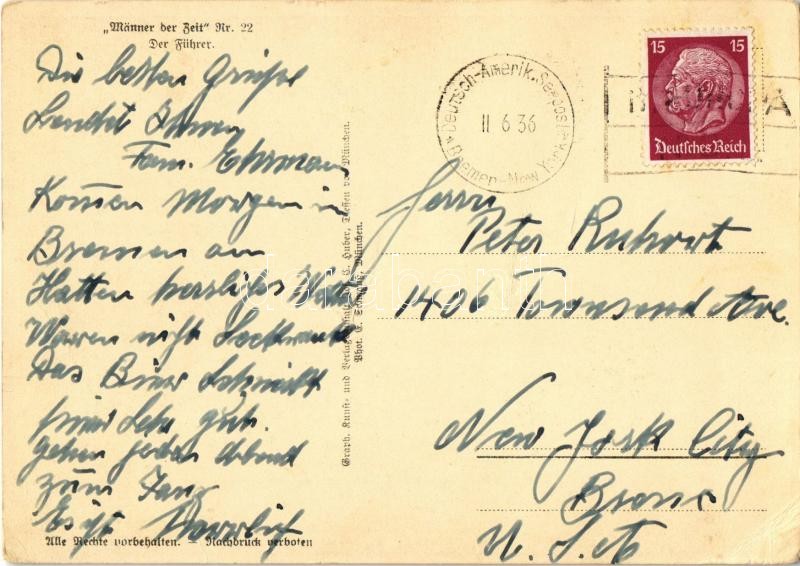 „Männer der Zeit“ Nr. 22
Der Führer.
Die besten Grüße
Sendet Ihnen
Fam. Ehrman
Kommen Morgen in
Bremen an
Hatten herrliches
Warren nicht Seekrank
Das Bier Schmeckt
hier Sehr gut.
Gehen jeden Abend
zum Tanz
Es ist Herrlich
Alle Rechte vorbehalten. – Nachdruck verboten
Graph. Kunst- und Verlagsanstalt Jos. C. Huber, Diessen vor München.
Phot. München.
Deutsch-Amerik. Seepost
Bremen-New York
11 6 36
15 15
Deutsches Reich
Herrn
Peter Ruhort
1406 Townsend Ave.
New York City
Bronx
U. S. A